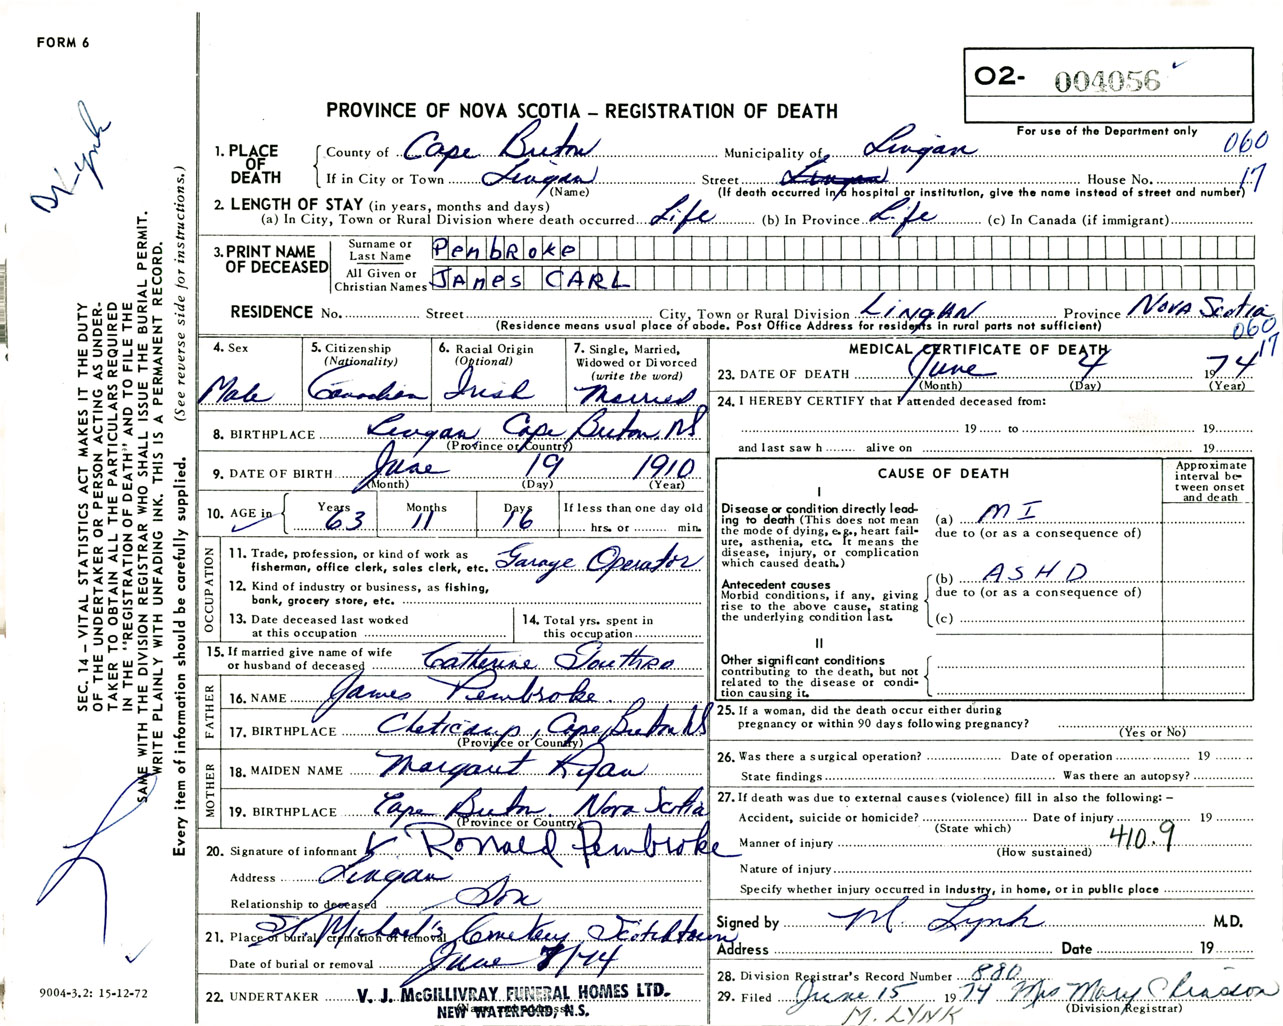 FORM 6
O2- 004056
For use of the Department only
PROVINCE OF NOVA SCOTIA – REGISTRATION OF DEATH
060
17
1. PLACE OF DEATH
County of Cape Breton Municipality of Lingan
If in City or Town Lingan Street Lingan House No.
(Name) (If death occurred in a hospital or institution, give the name instead of street and number)
2. LENGTH OF STAY (in years, months and days)
(a) In City, Town or Rural Division where death occurred Life (b) In Province Life (c) In Canada (if immigrant)
3. PRINT NAME OF DECEASED
Surname or Last Name PEmbROKE
All Given or Christian Names JAmes CARL
RESIDENCE No. Street City, Town or Rural Division LINGAN Province NOVA Scotia
(Residence means usual place of abode. Post Office Address for residents in rural parts not sufficient)
060
17
4. Sex Male
5. Citizenship (Nationality) Canadian
6. Racial Origin (Optional) Irish
7. Single, Married, Widowed or Divorced (write the word) Married
8. BIRTHPLACE Lingan, Cape Breton, NS
(Province or Country)
9. DATE OF BIRTH June 19 1910
(Month) (Day) (Year)
10. AGE in Years 63 Months 11 Days 16 If less than one day old hrs. or min.
OCCUPATION
11. Trade, profession, or kind of work as fisherman, office clerk, sales clerk, etc. Garage Operator
12. Kind of industry or business, as fishing, bank, grocery store, etc.
13. Date deceased last worked at this occupation
14. Total yrs. spent in this occupation
15. If married give name of wife or husband of deceased Catherine Gouthro
FATHER
16. NAME James Pembroke
17. BIRTHPLACE Cheticamp, Cape Breton NS
(Province or Country)
MOTHER
18. MAIDEN NAME Margaret Ryan
19. BIRTHPLACE Cape Breton, Nova Scotia
(Province or Country)
20. Signature of informant Ronald Pembroke
Address Lingan
Relationship to deceased Son
21. Place of burial, cremation or removal St. Michael's Cemetery Scotchtown
Date of burial or removal June 7/74
22. UNDERTAKER V. J. McGILLIVRAY FUNERAL HOMES LTD.
NEW WATERFORD, N.S.
MEDICAL CERTIFICATE OF DEATH
23. DATE OF DEATH June 4 1974
(Month) (Day) (Year)
24. I HEREBY CERTIFY that I attended deceased from:
19 to 19
and last saw h alive on 19
CAUSE OF DEATH
Approximate interval between onset and death
I
Disease or condition directly leading to death (This does not mean the mode of dying, e.g., heart failure, asthenia, etc. It means the disease, injury, or complication which caused death.)
(a) MI
due to (or as a consequence of)
Antecedent causes
Morbid conditions, if any, giving rise to the above cause, stating the underlying condition last.
(b) ASHD
due to (or as a consequence of)
(c)
II
Other significant conditions contributing to the death, but not related to the disease or condition causing it.
25. If a woman, did the death occur either during pregnancy or within 90 days following pregnancy?
(Yes or No)
26. Was there a surgical operation? Date of operation 19
State findings Was there an autopsy?
27. If death was due to external causes (violence) fill in also the following: –
Accident, suicide or homicide? Date of injury 19
(State which)
Manner of injury 410.9
(How sustained)
Nature of injury
Specify whether injury occurred in industry, in home, or in public place
Signed by M. Lynk M.D.
Address Date 19
28. Division Registrar's Record Number 880
29. Filed June 15 1974 Mrs Mary Chiasson
(Division Registrar)
M. LYNK
SEC. 14 – VITAL STATISTICS ACT MAKES IT THE DUTY
OF THE UNDERTAKER OR PERSON ACTING AS UNDER-
TAKER TO OBTAIN ALL THE PARTICULARS REQUIRED
IN THE "REGISTRATION OF DEATH" AND TO FILE THE
SAME WITH THE DIVISION REGISTRAR WHO SHALL ISSUE THE BURIAL PERMIT.
WRITE PLAINLY WITH UNFADING INK. THIS IS A PERMANENT RECORD.
Every item of information should be carefully supplied. (See reverse side for instructions.)
Lynk
9004-3.2: 15-12-72